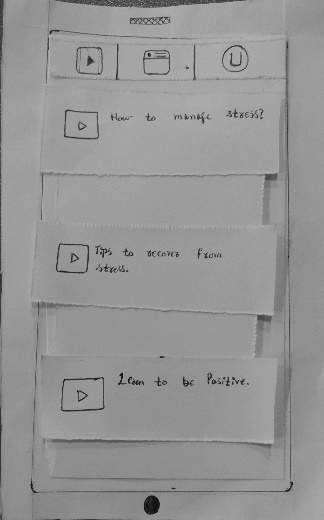 U
How to manage stress?
Tips to recover from
stress.
Learn to be Positive.